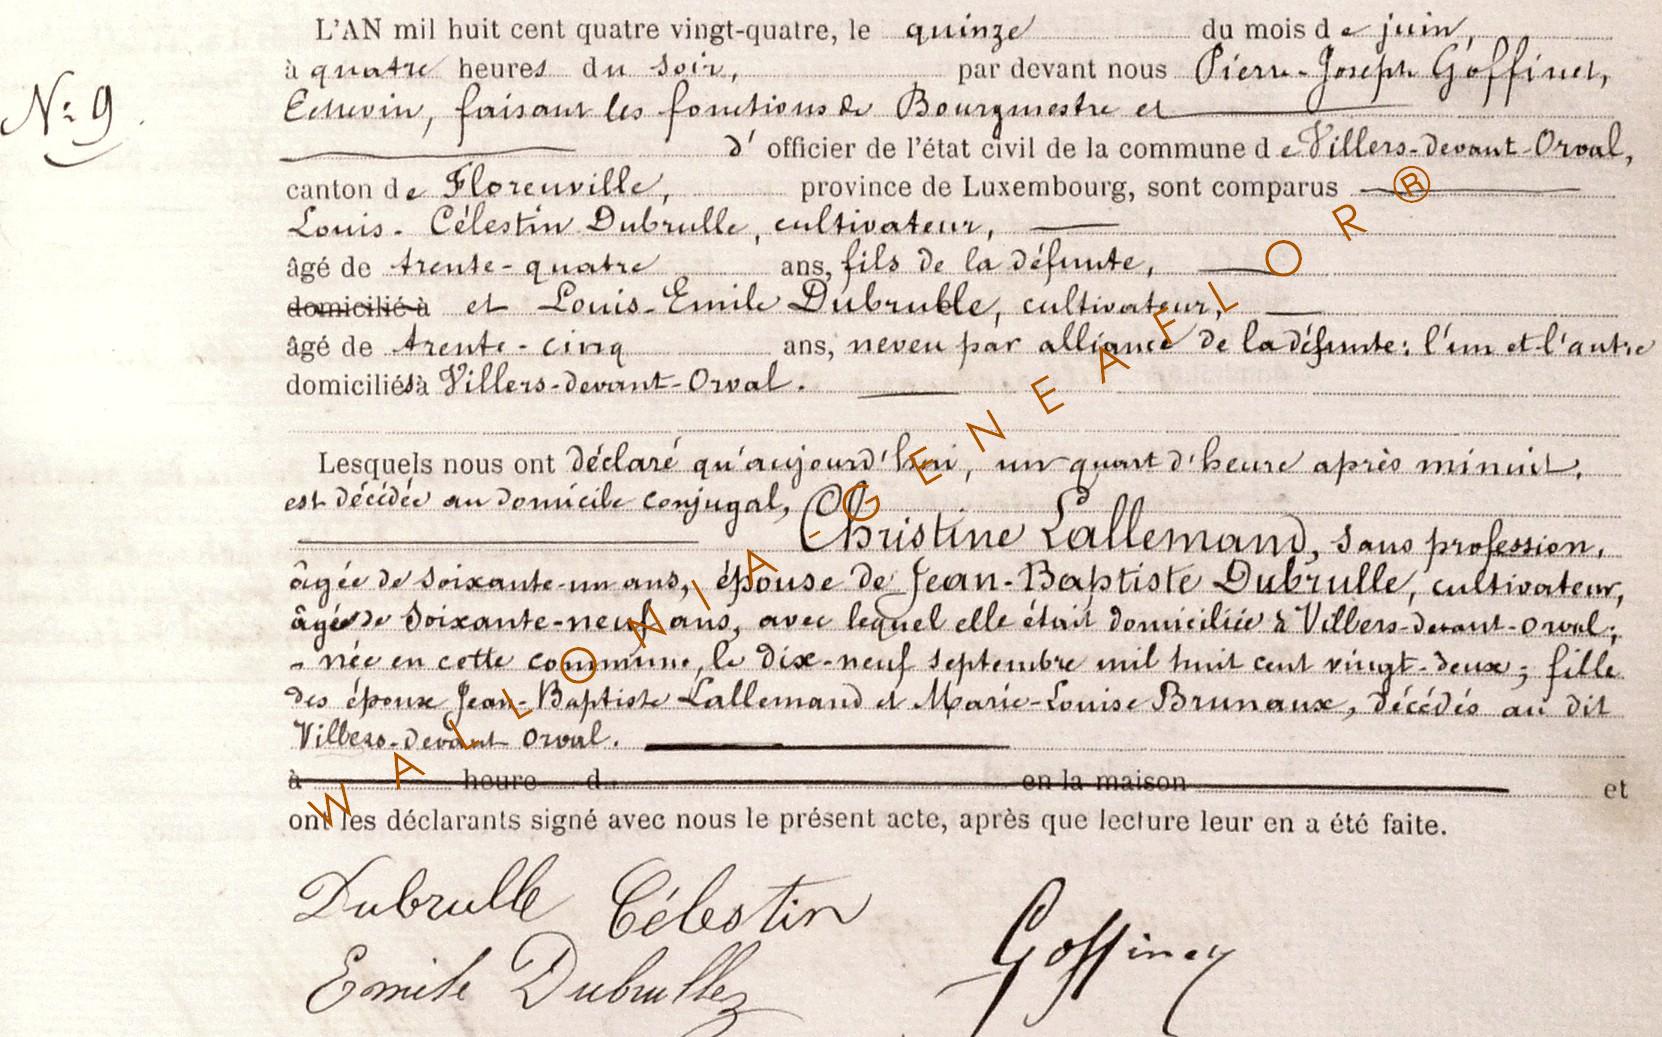 L'AN mil huit cent quatre vingt-quatre, le quinze du mois de juin,
à quatre heures du soir, par devant nous Pierre-Joseph Goffinet,
Echevin, faisant les fonctions de Bourgmestre et
N: 9.
d' officier de l'état civil de la commune de Villers-devant-Orval,
canton de Florenville, province de Luxembourg, sont comparus
Louis-Célestin Dubrulle, cultivateur,
âgé de trente-quatre ans, fils de la défunte,
domicilié à et Louis-Emile Dubrulle, cultivateur,
âgé de trente-cinq ans, neveu par alliance de la défunte: l'un et l'autre
domiciliés à Villers-devant-Orval.
Lesquels nous ont déclaré qu'aujourd'hui, un quart d'heure après minuit,
est décédée au domicile conjugal,
Christine Lallemand, sans profession,
âgée de soixante-un ans, épouse de Jean-Baptiste Dubrulle, cultivateur,
âgé de soixante-neuf ans, avec lequel elle était domiciliée à Villers-devant-Orval;
- née en cette commune, le dix-neuf septembre mil huit cent vingt-deux; fille
des époux Jean-Baptiste Lallemand et Marie-Louise Brunaux, décédés au dit
Villers-devant Orval.
à heure d en la maison et
ont les déclarants signé avec nous le présent acte, après que lecture leur en a été faite.
Dubrulle Célestin
Emile Dubrulle
Goffinet
WALLONIA-GENEAFLOR®